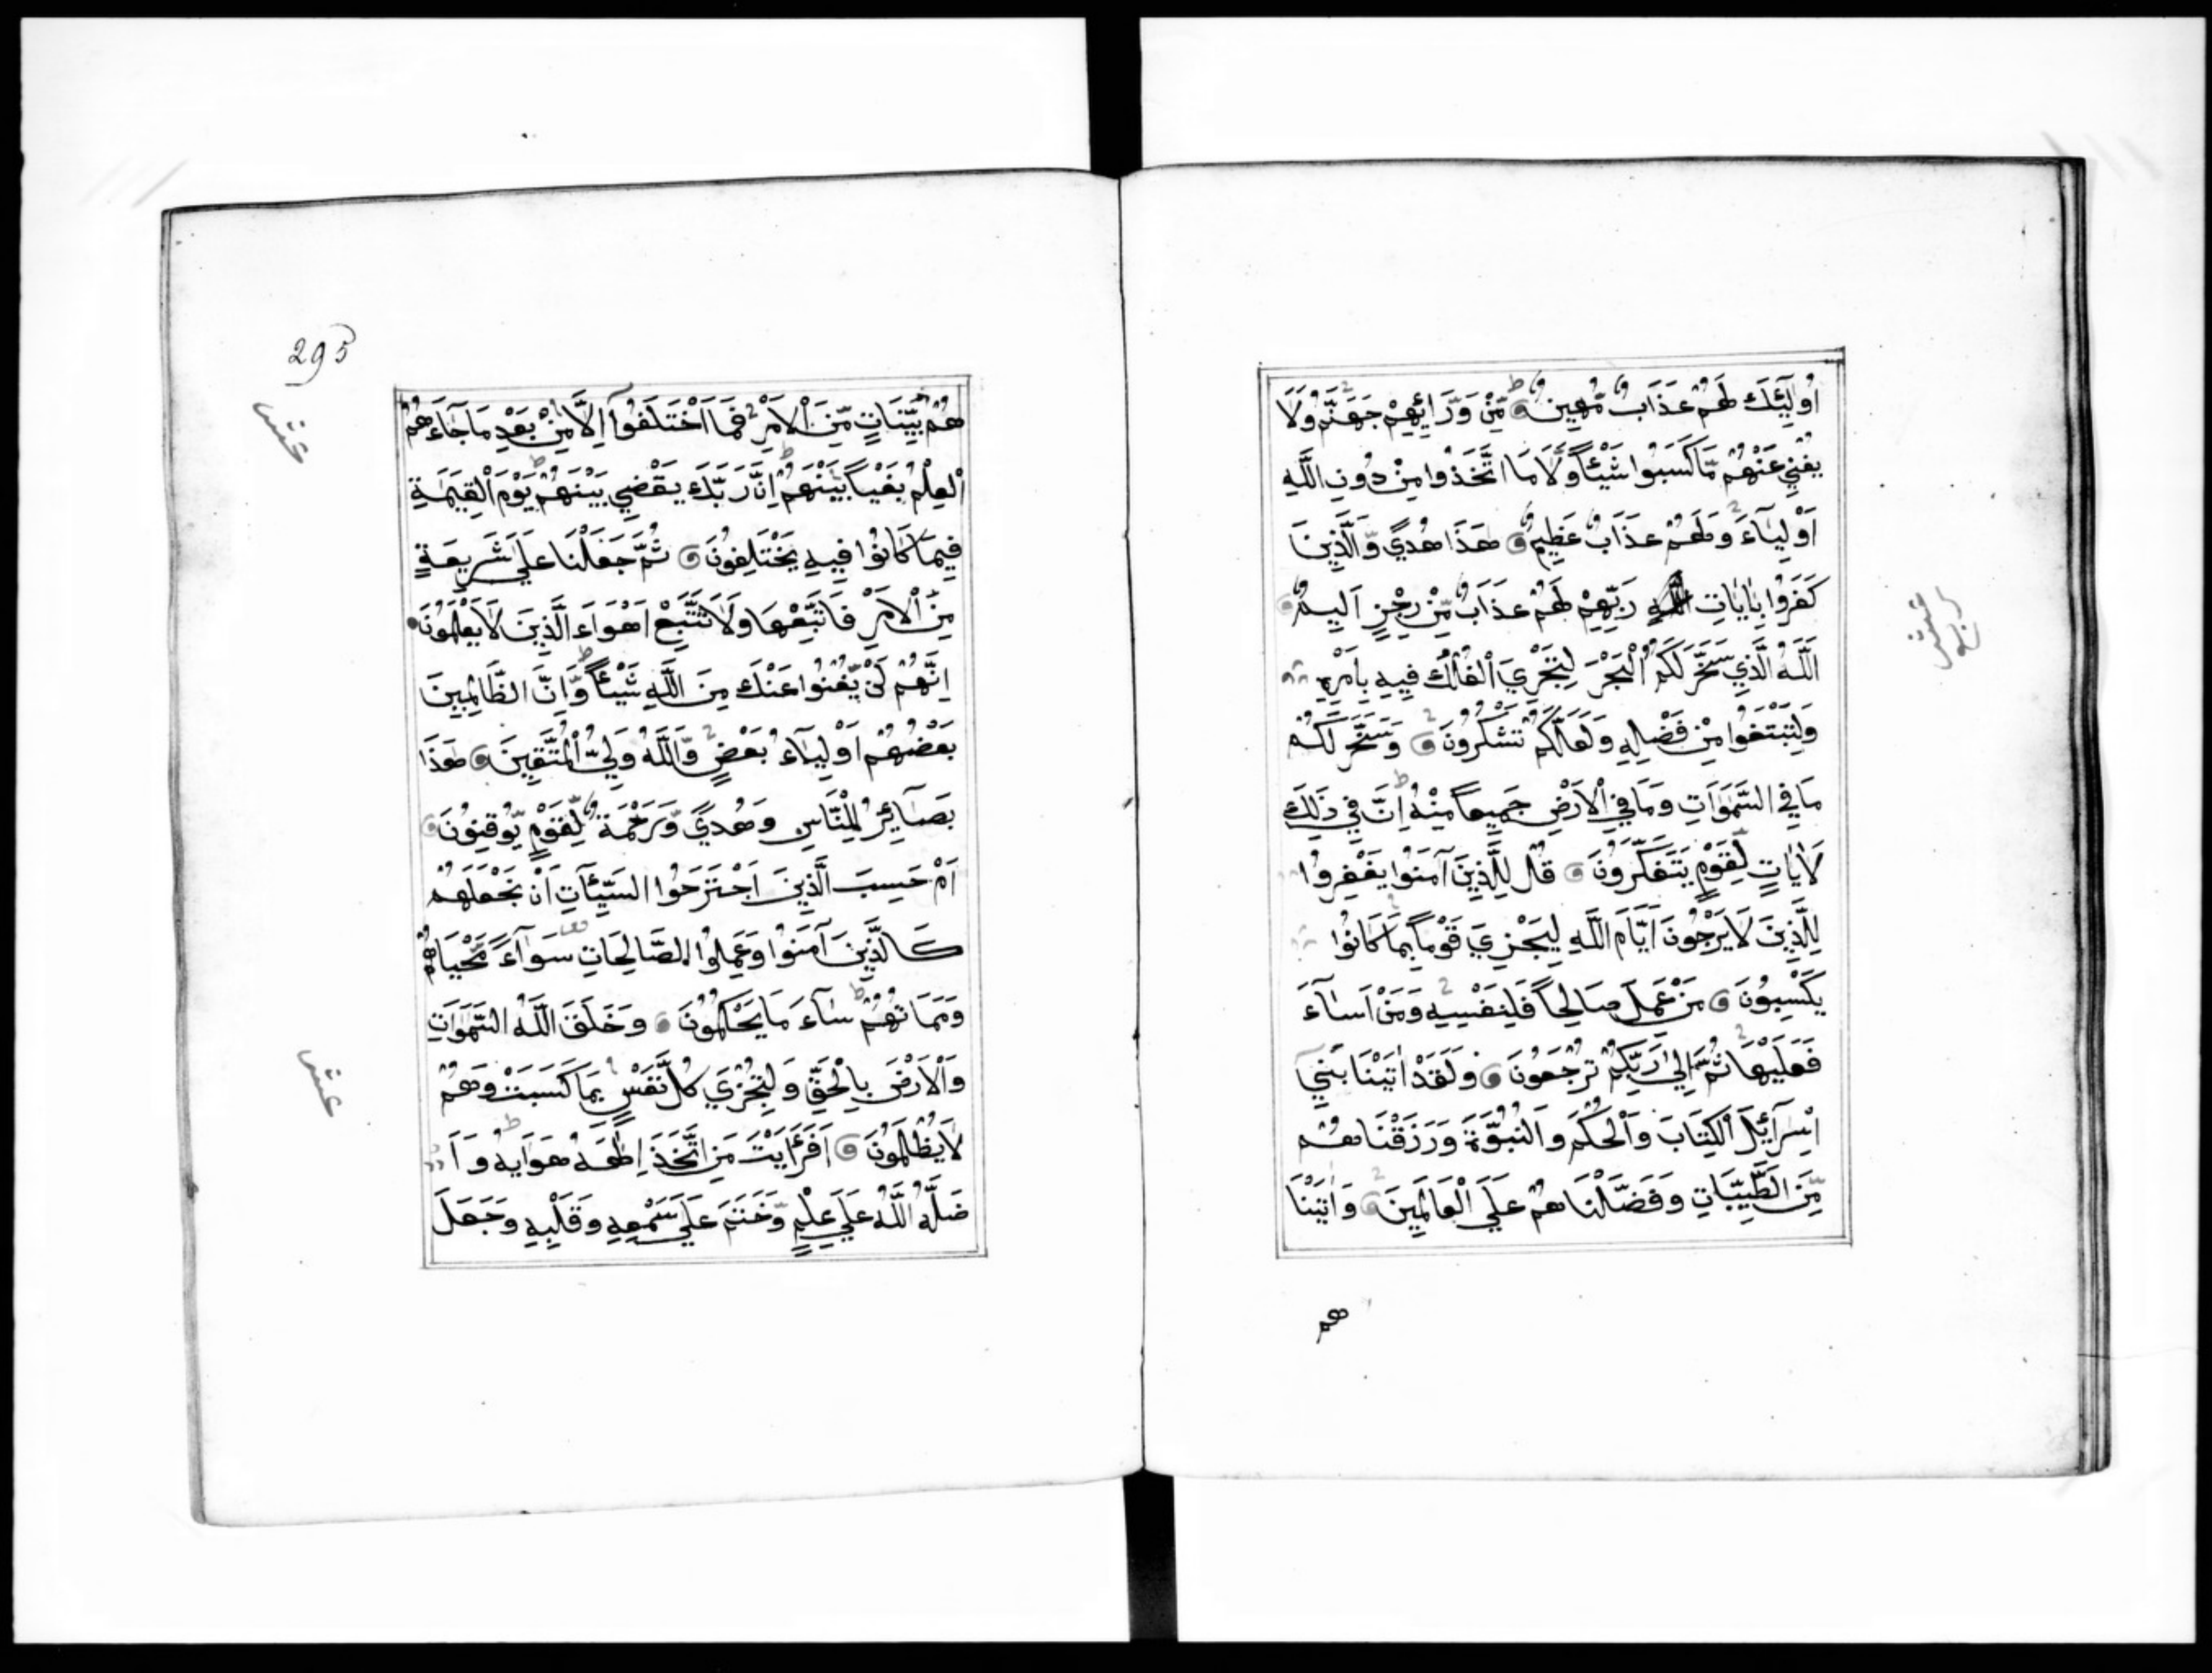 اُولٰٓئِكَ لَهُمْ عَذَابٌ مُّهِينٌ مِّنْ وَّرَآئِهِمْ جَهَنَّمُ وَلَا
يُغْنِي عَنْهُمْ مَّا كَسَبُوا شَيْئًا وَّلَا مَا اتَّخَذُوا مِنْ دُونِ اللَّهِ
اَوْلِيَآءَ وَلَهُمْ عَذَابٌ عَظِيمٌ هَذَا هُدًي وَّالَّذِينَ
كَفَرُوا بِاٰيَاتِ رَبِّهِمْ لَهُمْ عَذَابٌ مِّنْ رِجْزٍ اَلِيمٌ
اَللَّهُ الَّذِي سَخَّرَ لَكُمُ الْبَحْرَ لِتَجْرِيَ الْفُلْكُ فِيهِ بِاَمْرِهِ
وَلِتَبْتَغُوا مِنْ فَضْلِهِ وَلَعَلَّكُمْ تَشْكُرُونَ وَسَخَّرَ لَكُمْ
مَا فِي السَّمٰوَاتِ وَمَا فِي الْاَرْضِ جَمِيعًا مِّنْهُ اِنَّ فِي ذَلِكَ
لَاٰيَاتٍ لِّقَوْمٍ يَتَفَكَّرُونَ قُلْ لِلَّذِينَ آمَنُوا يَغْفِرُوا
لِلَّذِينَ لَا يَرْجُونَ اَيَّامَ اللَّهِ لِيَجْزِيَ قَوْمًا بِمَا كَانُوا
يَكْسِبُونَ مَنْ عَمِلَ صَالِحًا فَلِنَفْسِهِ وَمَنْ اَسَآءَ
فَعَلَيْهَا ثُمَّ اِلَيٰ رَبِّكُمْ تُرْجَعُونَ وَلَقَدْ اٰتَيْنَا بَنِيٓ
اِسْرَآئِلَ الْكِتَابَ وَالْحُكْمَ وَالنُّبُوَّةَ وَرَزَقْنَاهُمْ
مِّنَ الطَّيِّبَاتِ وَفَضَّلْنَاهُمْ عَلَي الْعَالَمِينَ وَاٰتَيْنَا
هم
295
عشر
هُمْ بَيِّنَاتٍ مِّنَ الْاَمْرِ فَمَا اخْتَلَفُوآ اِلَّا مِنْ بَعْدِ مَا جَآءَهُمُ
الْعِلْمُ بَغْيًا بَيْنَهُمْ اِنَّ رَبَّكَ يَقْضِي بَيْنَهُمْ يَوْمَ الْقِيٰمَةِ
فِيمَا كَانُوا فِيهِ يَخْتَلِفُونَ ثُمَّ جَعَلْنَا عَلَيٰ شَرِيعَةٍ
مِّنَ الْاَمْرِ فَاتَّبِعْهَا وَلَا تَتَّبِعْ اَهْوَآءَ الَّذِينَ لَا يَعْلَمُونَ
اِنَّهُمْ لَنْ يُّغْنُوا عَنْكَ مِنَ اللَّهِ شَيْئًا وَّاِنَّ الظَّالِمِينَ
بَعْضُهُمْ اَوْلِيَآءُ بَعْضٍ وَّاللَّهُ وَلِيُّ الْمُتَّقِينَ هَذَا
بَصَآئِرُ لِلنَّاسِ وَهُدًي وَّرَحْمَةٌ لِّقَوْمٍ يُّوقِنُونَ
اَمْ حَسِبَ الَّذِينَ اجْتَرَحُوا السَّيِّئَاتِ اَنْ نَجْعَلَهُمْ
كَالَّذِينَ آمَنُوا وَعَمِلُوا الصَّالِحَاتِ سَوَآءً مَّحْيَاهُمْ
وَمَمَاتُهُمْ سَآءَ مَا يَحْكُمُونَ وَخَلَقَ اللَّهُ السَّمٰوَاتِ
وَالْاَرْضَ بِالْحَقِّ وَلِتُجْزَي كُلُّ نَفْسٍ بِمَا كَسَبَتْ وَهُمْ
لَا يُظْلَمُونَ اَفَرَاَيْتَ مَنِ اتَّخَذَ اِلٰهَهُ هَوَايهُ وَاَ
ضَلَّهُ اللَّهُ عَلَي عِلْمٍ وَّخَتَمَ عَلَي سَمْعِهِ وَقَلْبِهِ وَجَعَلَ
عشر